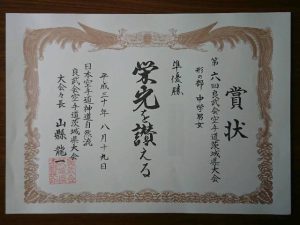 賞状
第六回良武会空手道茨城県大会
形の部 中学男女
準優勝
栄光を讃える
平成三十年 八月十九日
日本空手道神道自然流
良武会空手道茨城県大会
大会々長 山縣龍一